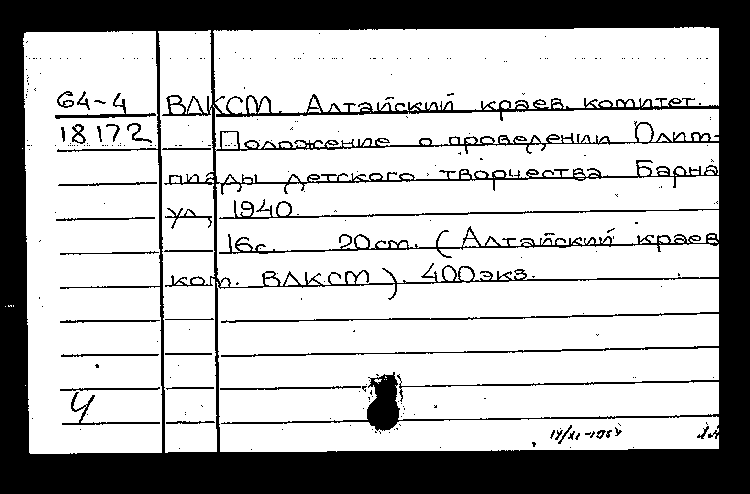 64-4 ВЛКСМ. Алтайский краев. комитет.
18172 Положение о проведении Олим-
пиады детского творчества. Барна
ул, 1940.
16с. 20см. (Алтайский краев
ком. ВЛКСМ). 400экз.
Ч